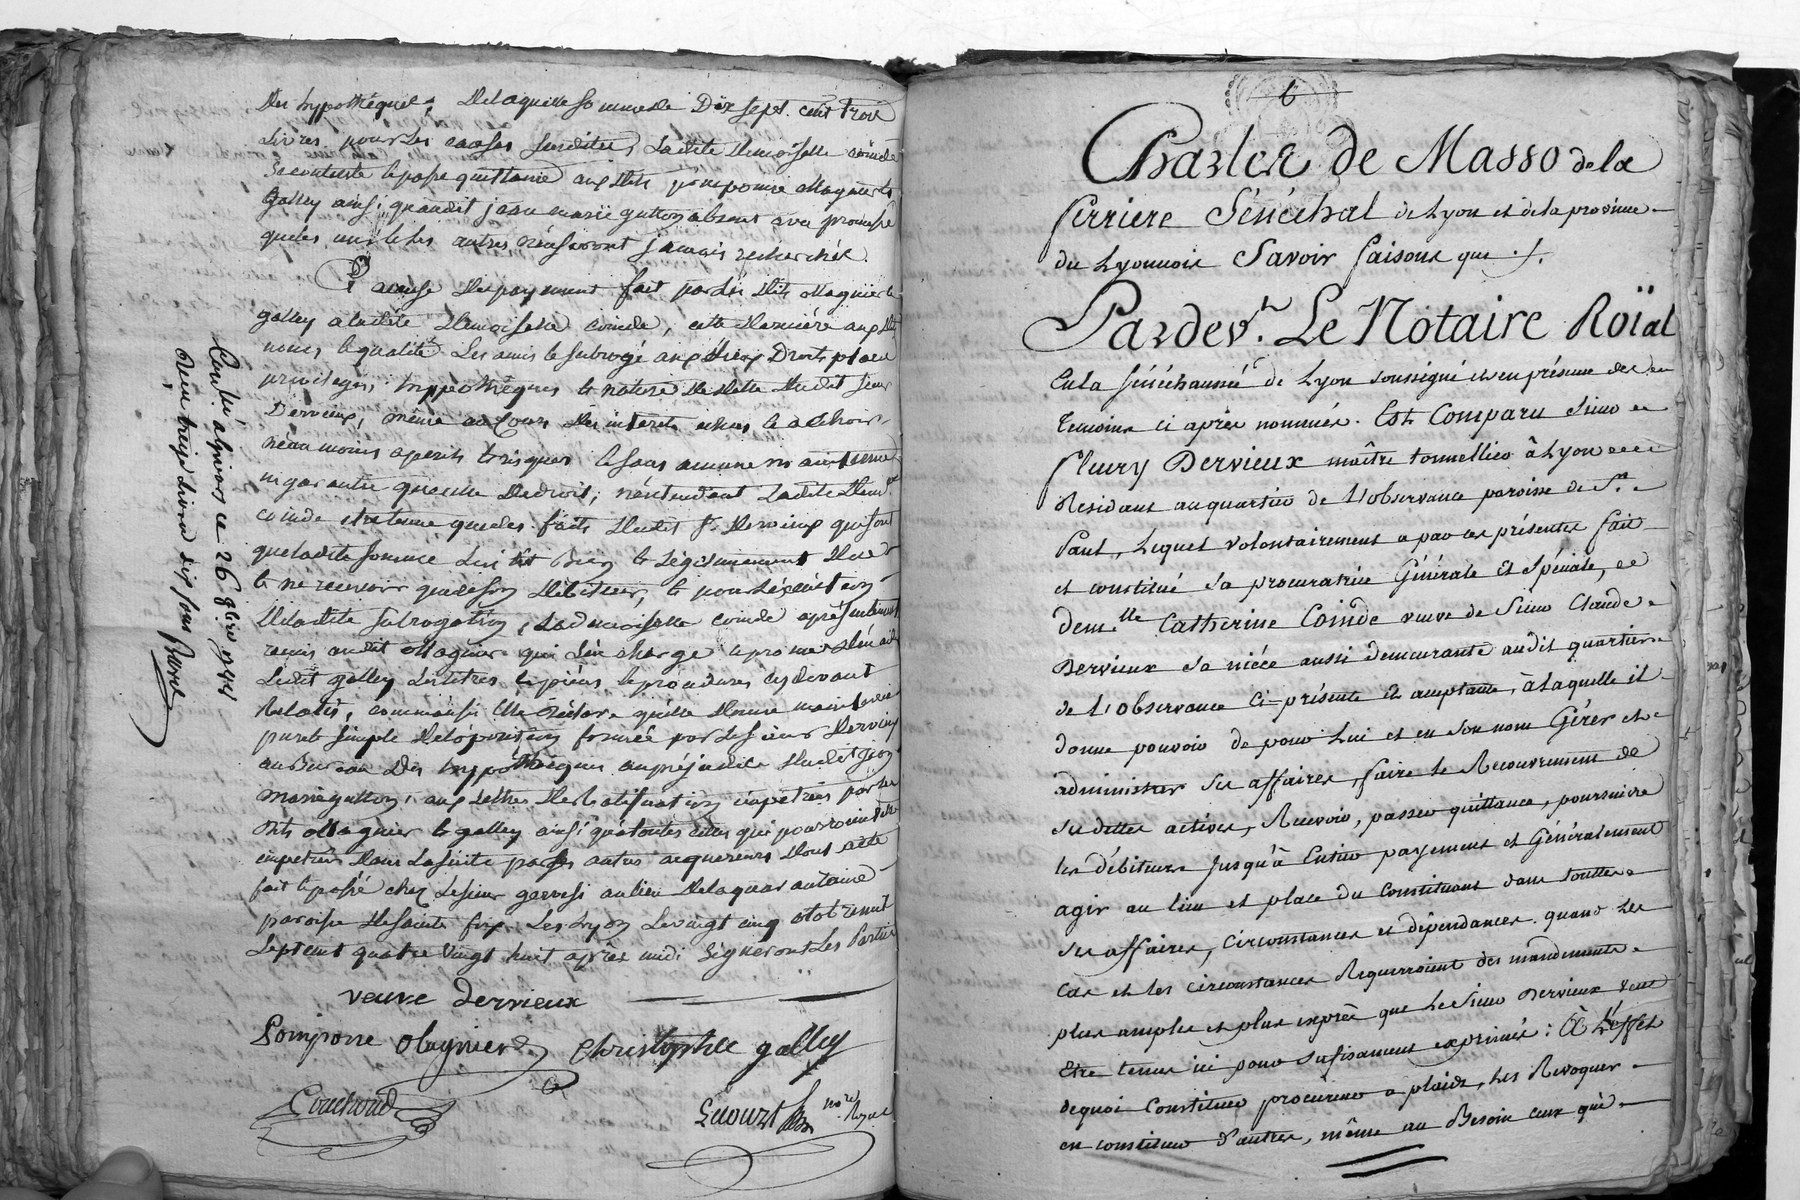 Des hypothéques; de laquelle somme de Dix sept cent trois
Livres pour les causes susdites, Ladite demoiselle coinde
se contente & passe quittance aux dits pompone olagnier &
galley ainsi qu'audit jean marie gutton absent avec promesse
que les uns & les autres n'en seront jamais recherchés.
Et a cause du payement fait par les dits olagnier &
galley a ladite demoiselle coinde, cette derniére aux dits
noms & qualité Les a mis & subrogé aux lieux Droits place
privileges, hyppothéques & nature de dette dudit sieur
Dervieux, même au Cours des interets echus & a echoir,
néanmoins a perils & risques & sans aucune maintenue
ni garantie quecune de droit; n'entendant Ladite dem.lle
coinde etre tenue que des faits dudit sr. dervieux qui sont
que ladite somme lui est Bien & légitimement due
& ne recevoir que de son débiteur, & pour l'exécution
de ladite subrogation, Lademoiselle coinde a présentement
remis audit olagnier qui s'en charge & promet d'en aider
Ledit galley Les titres & pièces & procedures cy devant
Relatés, comme aussi Elle déclare qu'elle donne mainlevée
pure & simple de l'oposition formée par le sieur Dervieux
au Bureau des hyppothéques au préjudice dudit jean
marie gutton, aux lettres de Ratification impetrées par les
dits olagnier & galley ainsi qu'à toutes celles qui pourroient être
impetrées dans la suite par les autres acquereurs Dont acte
fait & passé chez Le sieur gervesi au lieu de la quarantaine
paroisse de sainte foy Les Lyon Le vingt cinq octobre mil
sept cent quatre vingt huit après midi signeront Les Parties
veuve dervieux
Pompone olagnier
Christophle galley
Couchoud
not.re Royal
Con.lé à Lyon ce 26 8bre 1788
Reçu treize Livres dix sous
6
Charles de Masso de la
ferriere Sénéchal de Lyon et de la province
du Lyonnois Savoir faisons que
Pardev.t Le Notaire Roïal
En la sénéchaussée de Lyon soussigné et en présence des
Temoins ci après nommés. Est Comparu Sieur
fleury Dervieux maître tonnellier à Lyon
Résidant au quartier de l'observance paroisse de St.
Paul, lequel volontairement a par ces présentes fait
et constitué sa procuratrice Générale et Spéciale,
demlle Catherine Coinde veuve de Sieur Claude
Dervieux sa niéce aussi demeurante audit quartier
de l'observance ci-présente et acceptante, à laquelle il
donne pouvoir de pour Lui et en son nom Gérer et
administrer ses affaires, faire le Recouvrement de
ses dettes actives, Recevoir, passer quittance, poursuivre
les débiteurs jusqu'à Entier payement et Généralement
agir au lieu et place du Constituant dans toutes
ses affaires, circonstances et dépendances. quand les
cas et les circonstances Requerroient des mandements
plus amples et plus exprès que le sieur Dervieux veut
Etre tenus ici pour sufisament exprimés: A L'effet
dequoi Constituer procureur a plaids, les Revoquer
en constituer d'autres, même au Besoin ceux qui